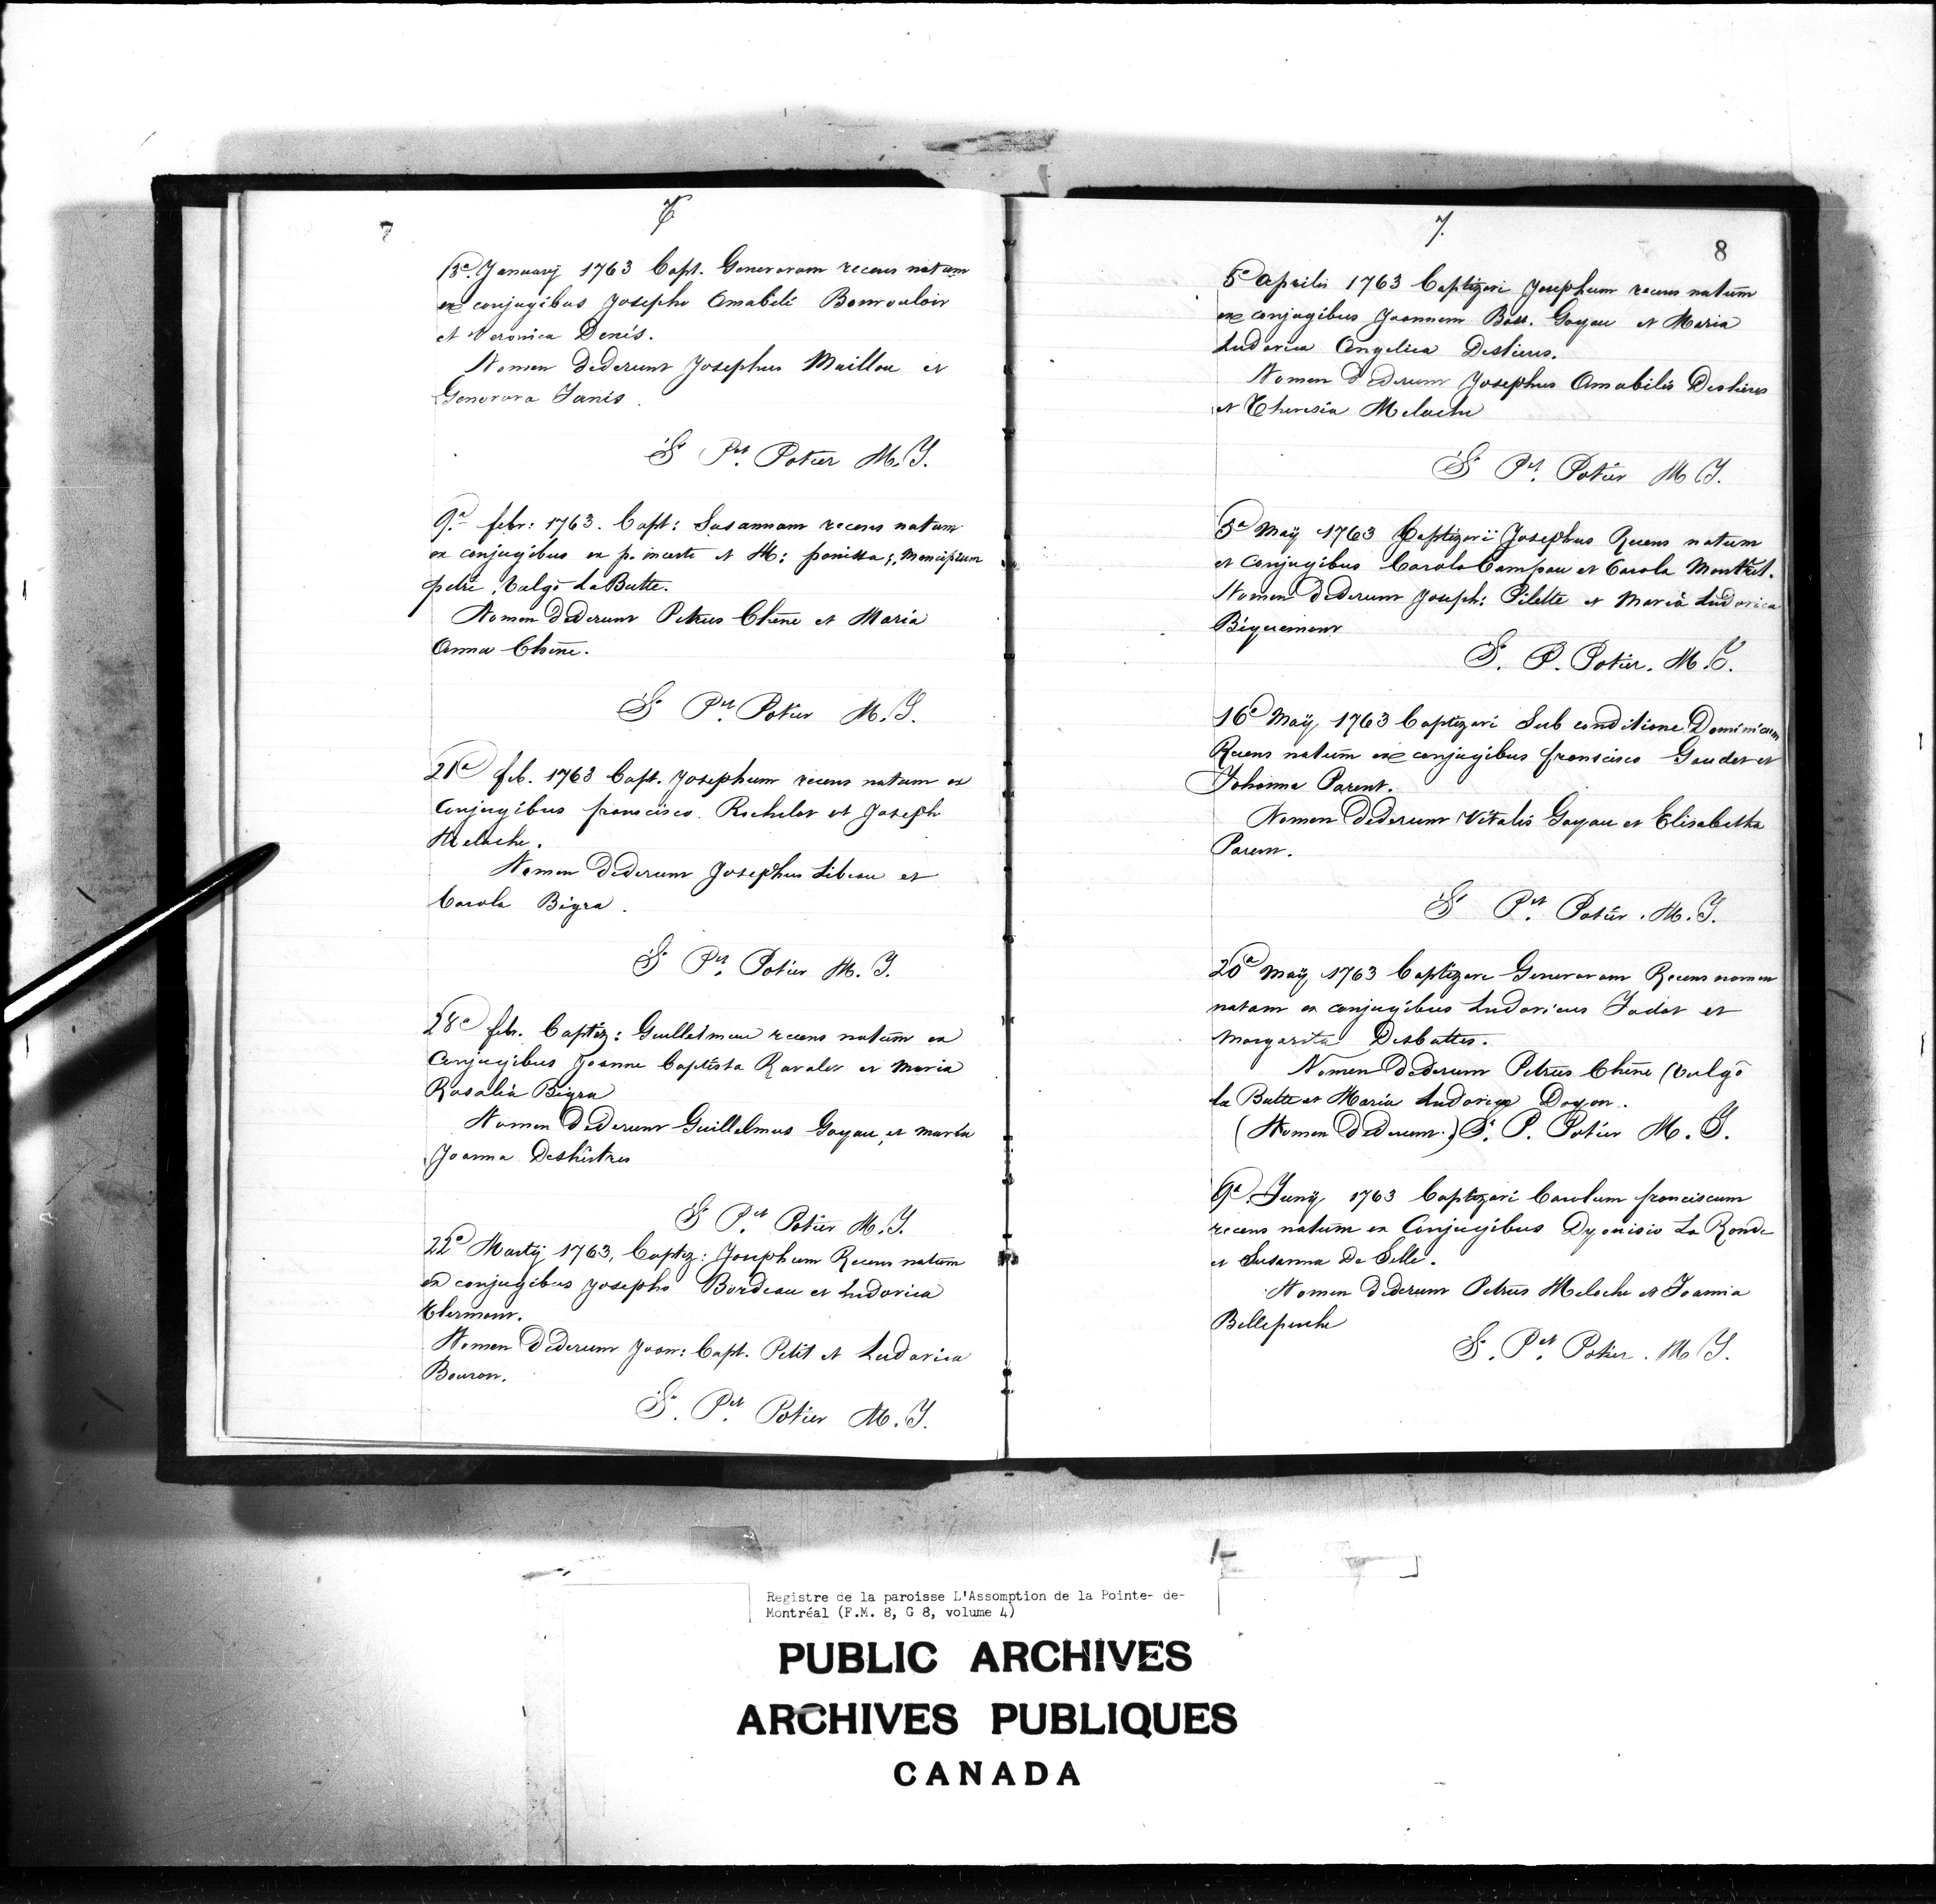 7
6
13a Januarij 1763 Bapt. Genevavam recens natam
ex conjugibus Josepho Amabili Bonvouloir
et Veronica Denis.
Nomen dederunt Josephus Maillou et
Genovava Janis.
S Put. Potier M. J.
9.a febr: 1763. Bapt: Susannam recens natam
ex conjugibus ex p. incerto et M: panissa; mancipium
petri Vulgo LaButte.
Nomen dederunt Petrus Chêne et Maria
Anna Chêne.
S Pet. Potier M. J.
21a feb. 1763 Bapt. Josephum recens natum ex
Conjugibus francisco Rochelot et Joseph
Meloche.
Nomen dederunt Josephus Libeau et
Carola Bigra.
S Pet. Potier M. J.
28a feb. Baptiz: Guillelmum recens natum ex
Conjugibus Joanne Baptista Ravalet et Maria
Rosalia Bigra
Nomen dederunt Guillelmus Goyau, et Maria
Joanna Deshêtres
S P.et Potier M. J.
22a Martij 1763, Baptiz: Josephum Recens natum
ex conjugibus Josepho Bordeau et Ludovica
Clermont.
Nomen dederunt Joan: Bapt. Petit et Ludovica
Bouron.
S. Pet. Potier M. J.
7.
8
5a aprilis 1763 Baptizavi Josephum recens natum
ex conjugibus Joannem Bapt. Goyau et Maria
Ludovica Angelica Destieres.
Nomen dederunt Josephus Amabilis Deshieres
et Theresia Meloche
S Pt. Potier M J.
3a Maÿ 1763 Baptizavi Josephus Recens natum
et Conjugibus Carolo Campau et Carola Montret.
Nomen dederunt Joseph: Pilette et Maria Ludovica
Biquemont
S. P. Potier. M. J.
16a Maÿ 1763 Baptizavi Sub conditione Dominicum
Recens natum ex conjugibus francisco Gaudet et
Johanna Parent.
Nomen dederunt Vitalis Goyau et Elisabetha
Parent.
S Pet. Potier. M. J.
20a Maÿ 1763 Baptizavi Genevavam Recens nomen
natam ex conjugibus Ludovicus Jadot et
Margarita Desbuttes.
Nomen dederunt Petrus Chêne (Vulgo
La Butte et Maria Ludovica Doyon.
(Nomen dederunt.) S. P. Potier M. J.
9a Junij 1763 Baptizavi Carolum franciscum
recens natum ex Conjugibus Dyonisio La Ronde
et Susanna De Selle.
Nomen dederunt Petrus Meloche et Joannia
Belleperche
S. Pet. Potier. M J.
Registre de la paroisse L'Assomption de la Pointe- de-
Montréal (F.M. 8, G 8, volume 4)
PUBLIC ARCHIVES
ARCHIVES PUBLIQUES
CANADA